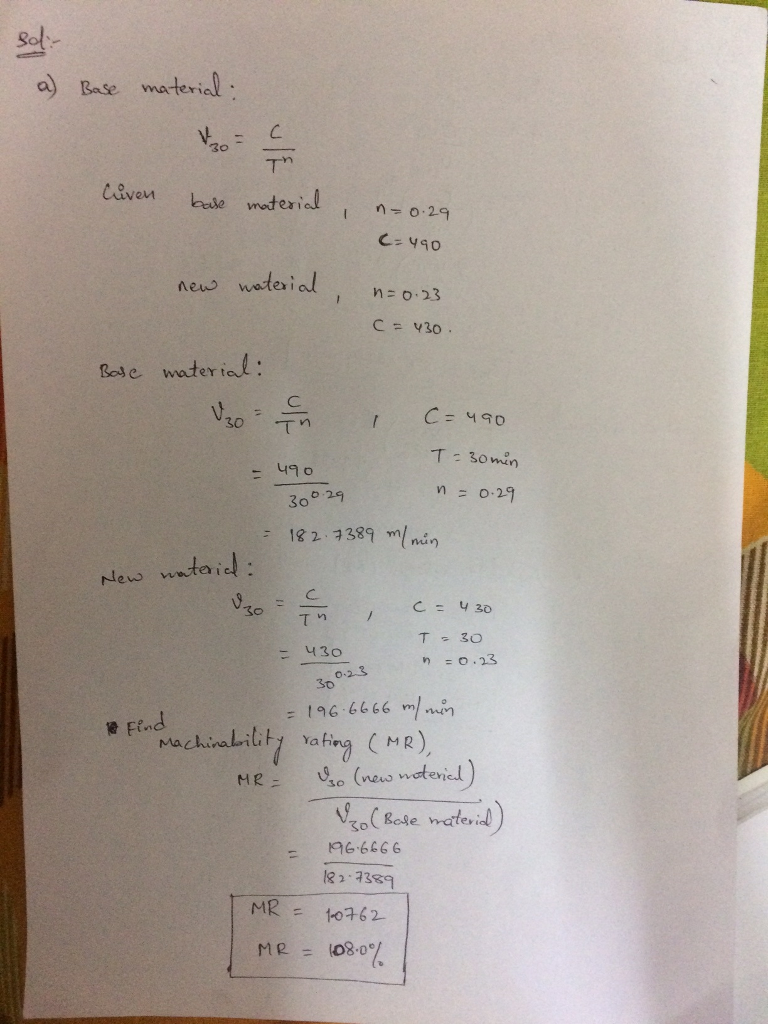 Sol:-
a) Base material:
V30 = C / T^n
Given base material, n = 0.29
C = 490
new material, n = 0.23
C = 430.
Base material:
V30 = C / T^n , C = 490
T = 30 min
= 490 / 30^0.29 n = 0.29
= 182.7389 m/min
New material:
V30 = C / T^n , C = 430
T = 30
= 430 / 30^0.23 n = 0.23
= 196.6666 m/min
Find
Machinability rating (MR),
MR = V30 (new material) / V30 (Base material)
= 196.6666 / 182.7389
MR = 1.0762
MR = 108.0%